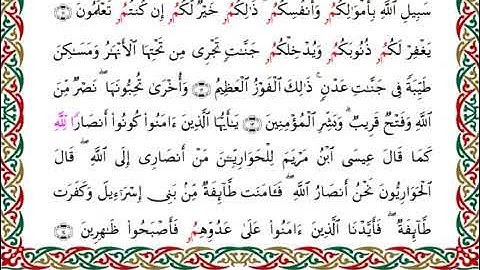 سَبِيلِ اللَّهِ بِأَمْوَالِكُمُۥ وَأَنفُسِكُمُۥ ۚ ذَٰلِكُمُۥ خَيْرٌ لَّكُمُۥ إِن كُنتُمُۥ تَعْلَمُونَ ۝
يَغْفِرْ لَكُمُۥ ذُنُوبَكُمُۥ وَيُدْخِلْكُمُۥ جَنَّٰتٍ تَجْرِى مِن تَحْتِهَا الْأَنْهَٰرُ وَمَسَٰكِنَ
طَيِّبَةً فِى جَنَّٰتِ عَدْنٍ ۚ ذَٰلِكَ الْفَوْزُ الْعَظِيمُ ۝ وَأُخْرَىٰ تُحِبُّونَهَا ۖ نَصْرٌ مِّنَ
اللَّهِ وَفَتْحٌ قَرِيبٌ ۗ وَبَشِّرِ الْمُؤْمِنِينَ ۝ يَٰٓأَيُّهَا الَّذِينَ ءَامَنُوا كُونُوٓا أَنصَارًا لِّلَّهِ
كَمَا قَالَ عِيسَى ابْنُ مَرْيَمَ لِلْحَوَارِيِّـۧنَ مَنْ أَنصَارِى إِلَى اللَّهِ ۖ قَالَ
الْحَوَارِيُّونَ نَحْنُ أَنصَارُ اللَّهِ ۖ فَـَٔامَنَت طَّآئِفَةٌ مِّن بَنِىٓ إِسْرَٰٓءِيلَ وَكَفَرَت
طَّآئِفَةٌ ۖ فَأَيَّدْنَا الَّذِينَ ءَامَنُوا عَلَىٰ عَدُوِّهِمُۥ فَأَصْبَحُوا ظَٰهِرِينَ ۝